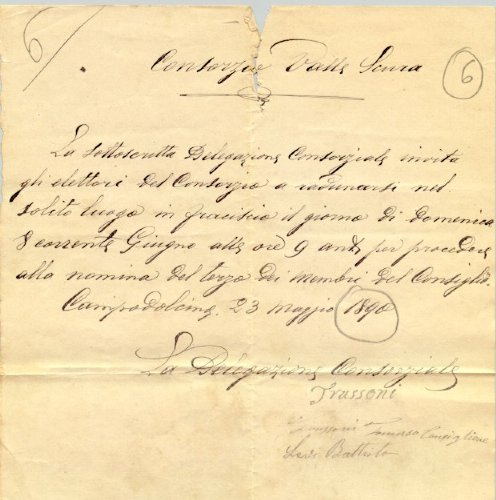 6
6
Consorzio Valle Scura
La sottoscritta Delegazione Consorziale invita
gli elettori del Consorzio a radunarsi nel
solito luogo in fraciscio il giorno di domenica
8 corrente Giugno alle ore 9 ant. per procedere
alla nomina del terzo dei membri del Consiglio.
Campodolcino, 23 maggio 1890
La Delegazione Consorziale
Trussoni
Trussoni Tomaso Consigliere
Levi Battista